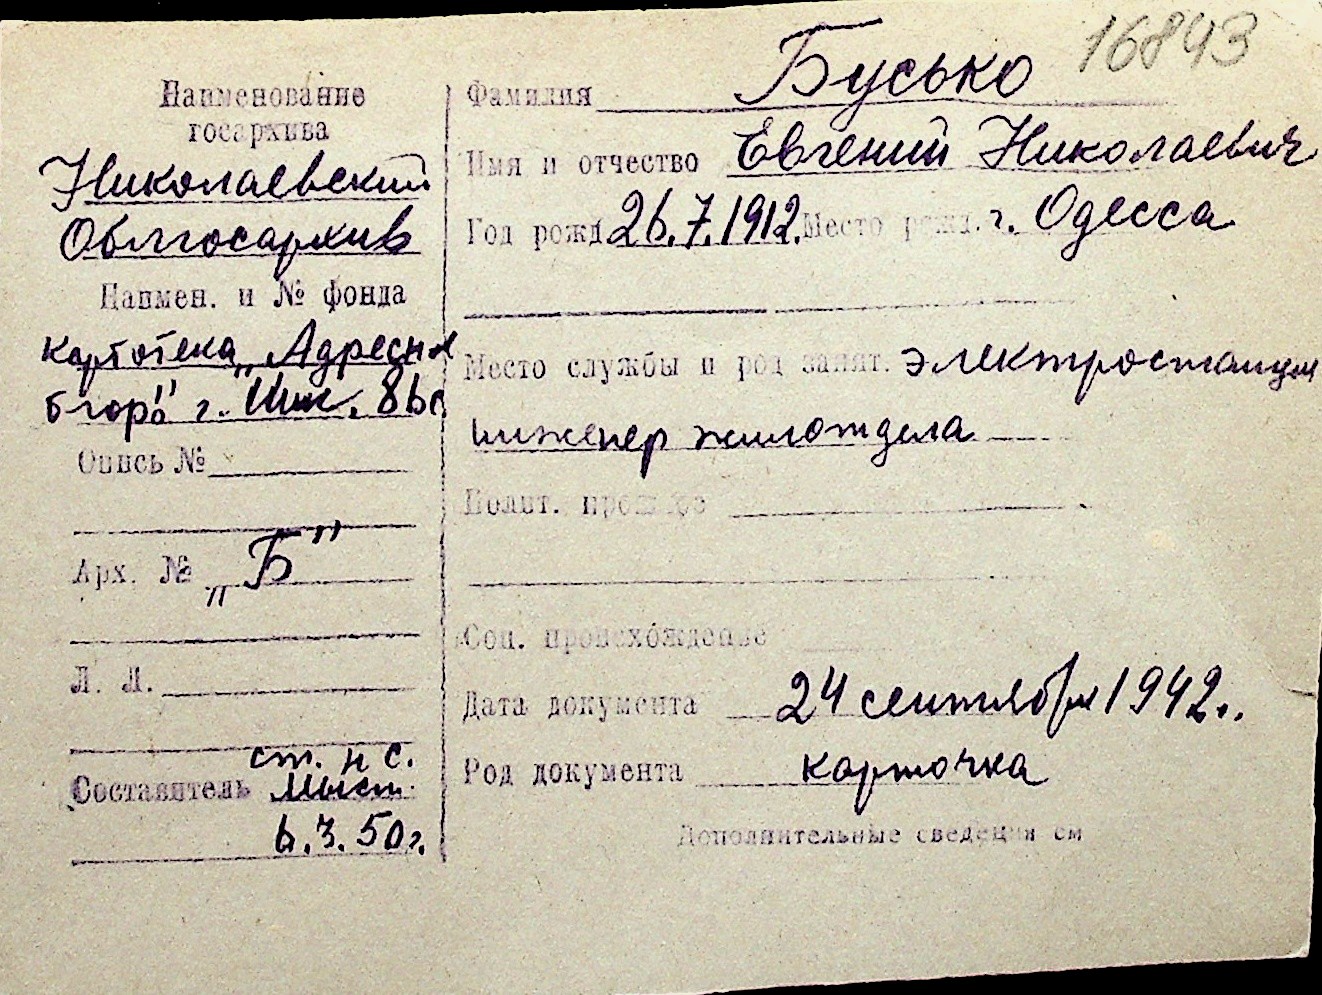 16843
Наименование
госархива
Николаевский
Облгосархив
Наимен. и № фонда
картотека „Адресн
бюро" г. Ник.
Опись №
Арх. № „Б"
Л. Л.
Составитель ст. н с.
Мыст.
6.3.50г.
Фамилия Бусько
Имя и отчество Евгений Николаевич
Год рожд 26.7.1912. Место рожд. г. Одесса
Место службы и род занят. электростанция
инженер жилотдела
Полит. прошлое
Соц. происхождение
Дата документа 24 сентября 1942г.
Род документа карточка
Дополнительные сведения см